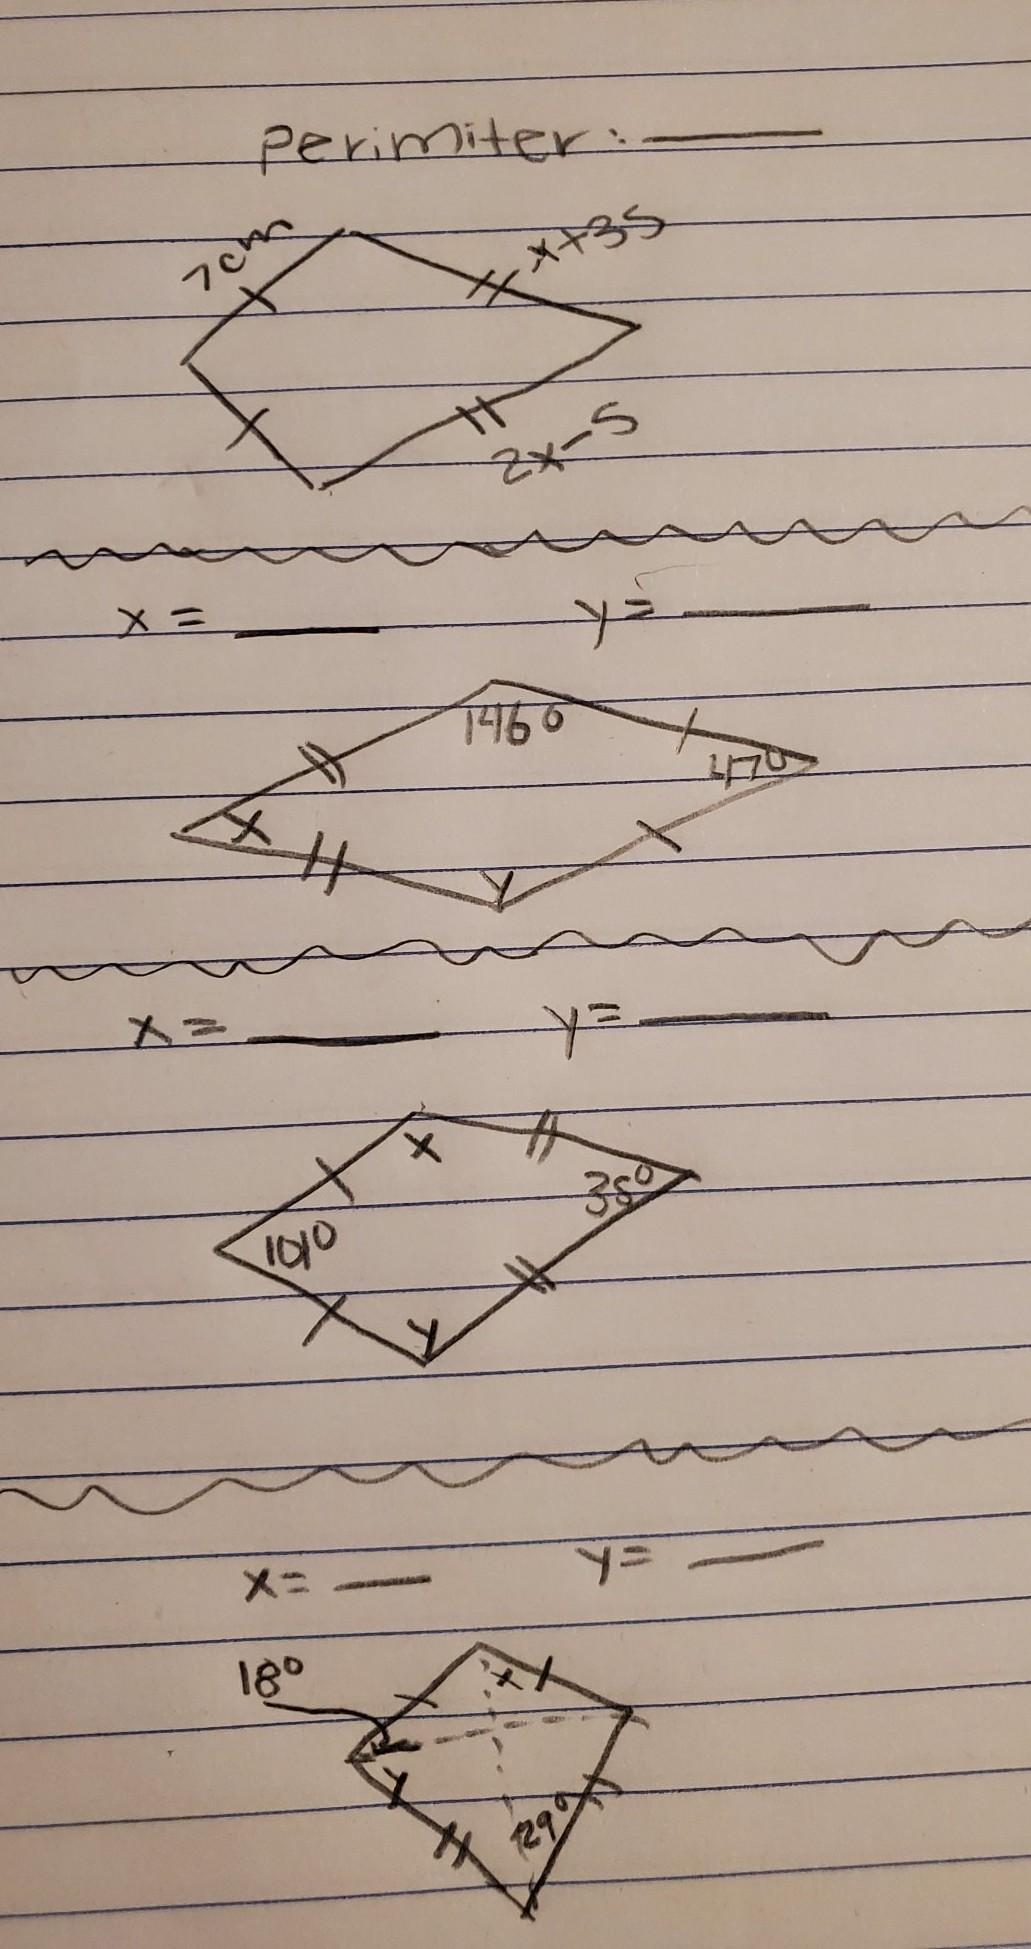 Perimiter: ____
7cm
x+35
2x-5
x = ____ y = ____
146°
47°
x
y
x = ____ y = ____
x
35°
101°
y
x = ____ y = ____
18°
x
y
29°